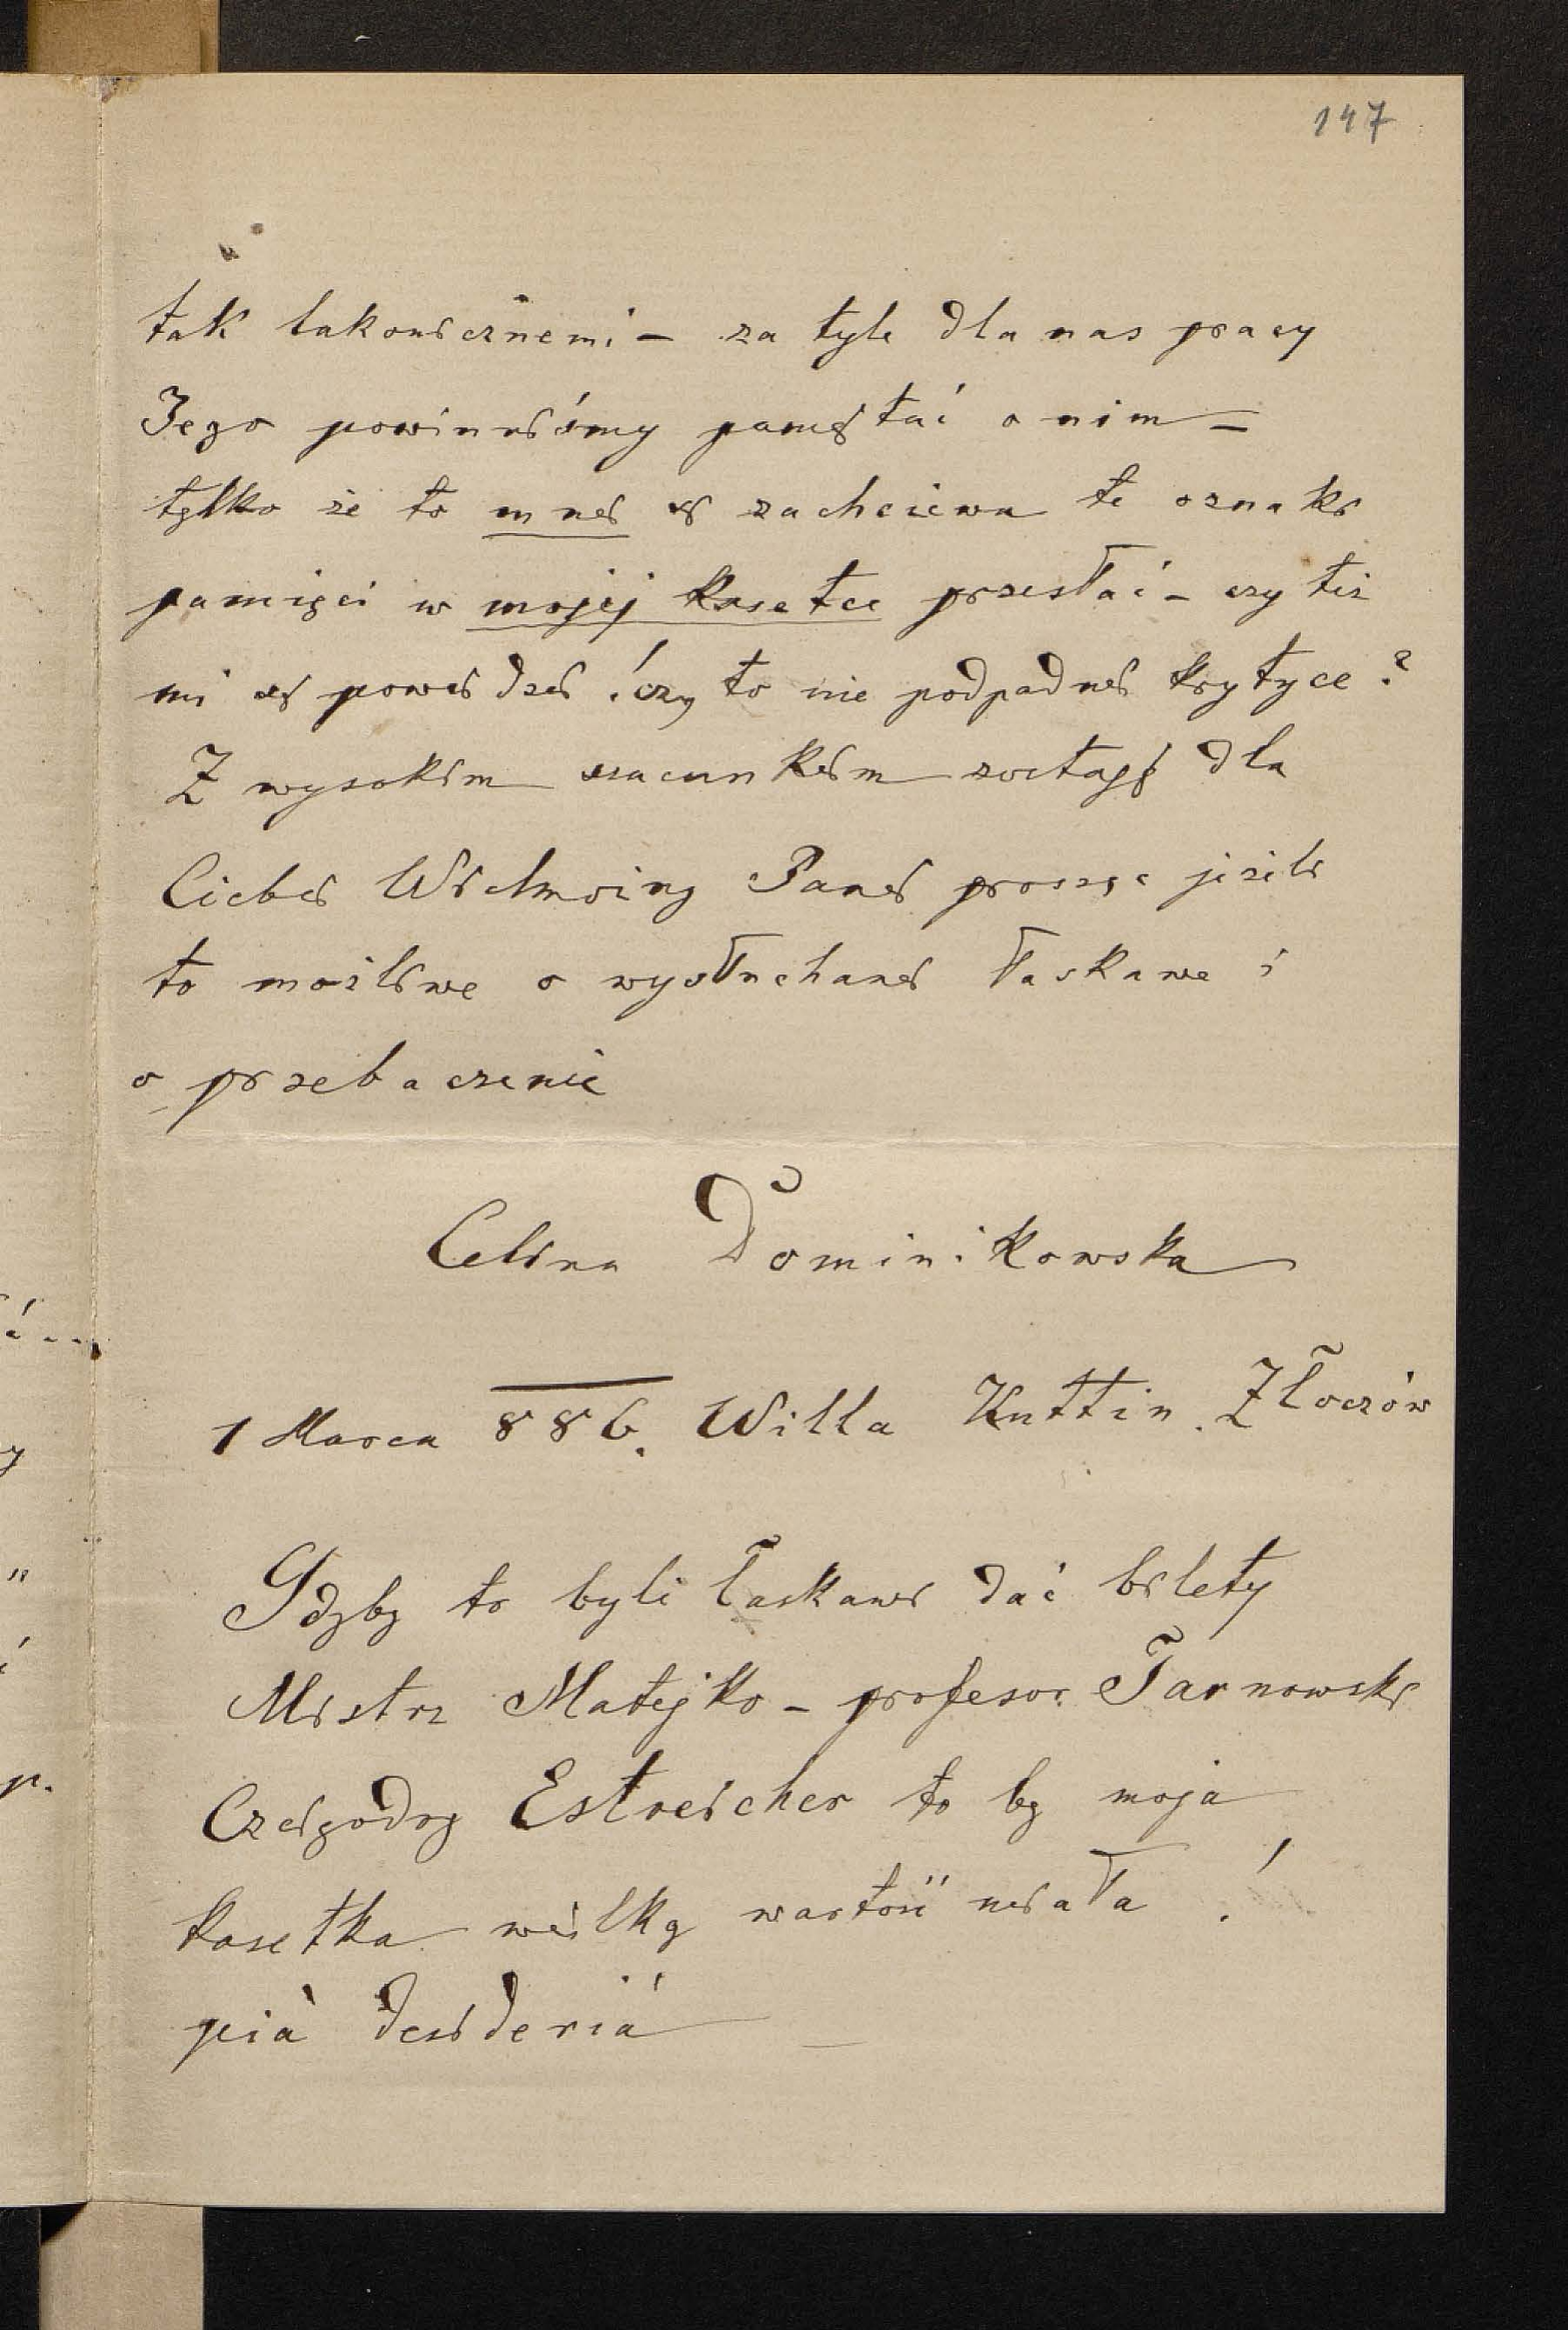 147
tak lakonicznemi – za tyle dla nas pracy
Jego powinniśmy pamiętać o nim –
tylko że to mnie się zachciewa te oznaki
pamięci w mojej kasetce przesłać – czy też
mi się powiedzie! czy to nie podpadnie krytyce?
Z wysokiem szacunkiem zostaję dla
Ciebie Wielmożny Panie prosząc jeżeli
to możliwe o wysłuchanie łaskawe i
o przebaczenie
Celina Dominikowska
1 Marca 886. Willa Kuttin. Złoczów
Gdyby to byli łaskawi dać bilety
Mistrz Matejko – profesor Tarnowski
Czcigodny Estreicher to by moja
kasetka wielką wartość miała!
pià desideriá –